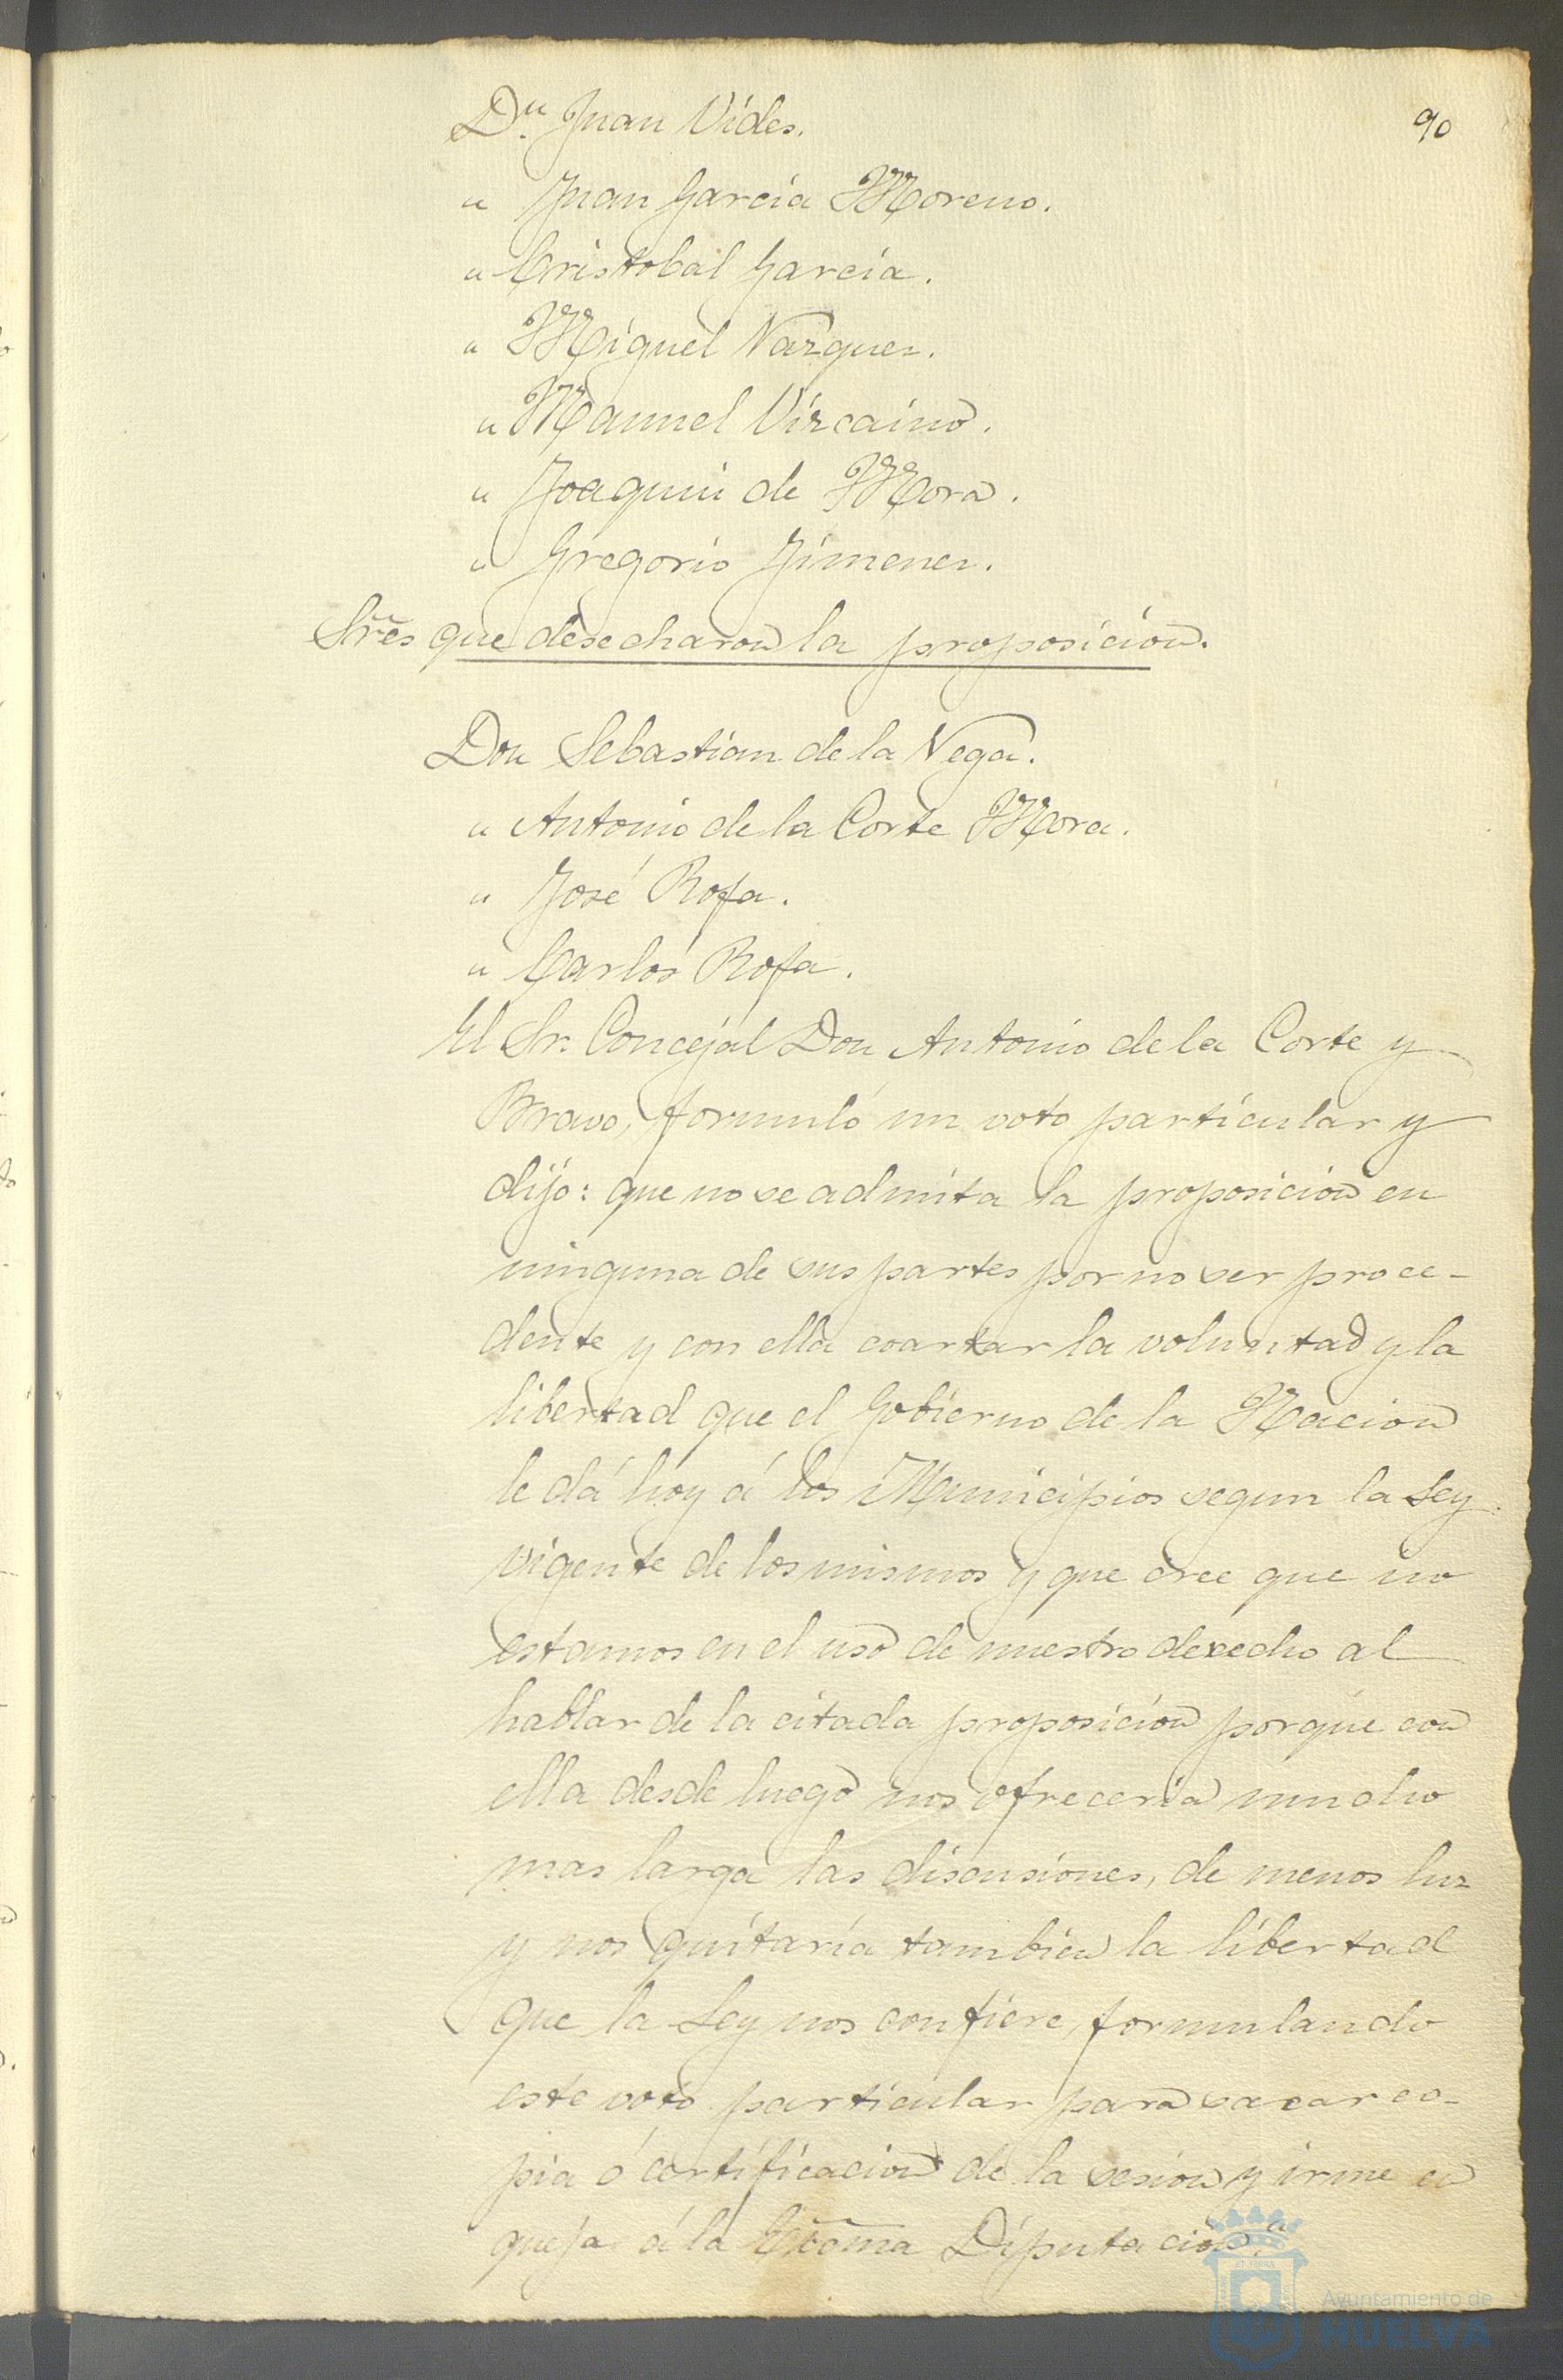 90
Dn. Juan Vides.
" Juan Garcia Moreno.
" Cristobal Garcia.
" Miguel Vazquez.
" Manuel Vizcaino.
" Joaquin de Mora.
" Gregorio Jimenez.
Sres que desecharon la proposicion.
Don Sebastian de la Vega.
" Antonio de la Corte Mora.
" José Rofa.
" Carlos Rofa.
El Sr. Concejal Don Antonio de la Corte y
Bravo, formuló un voto particular y
dijo: que no se admita la proposicion en
ninguna de sus partes por no ser proce-
dente y con ella coartar la voluntad y la
libertad que el Gobierno de la Nacion
le dá hoy á los Municipios segun la Ley
vigente de los mismos y que cree que no
estamos en el uso de nuestro derecho al
hablar de la citada proposicion porque con
ella desde luego nos ofreceria mucho
mas larga las discusiones, de menos luz
y nos quitaría tambien la libertad
que la Ley nos confiere, formulando
este voto particular para sacar co-
pia ó certificacion de la sesion y irme en
queja á la Excma Diputacion."
Ayuntamiento de
HUELVA